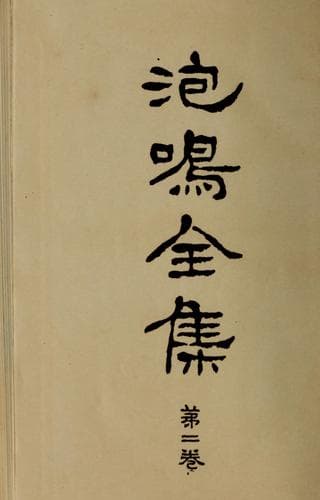 泡鳴全集
第二卷